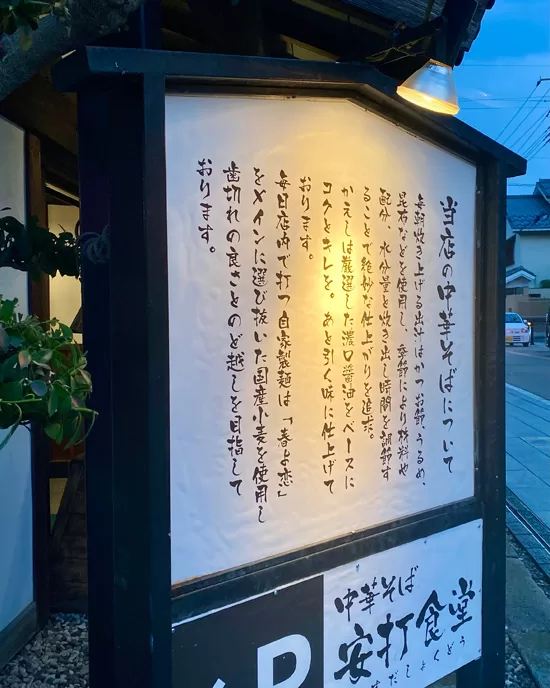 当店の中華そばについて
毎朝炊き上げる出汁はかつお節、うるめ、
昆布などを使用し、季節により材料や
配分、水分量と炊き出し時間を調節す
ることで絶妙な仕上がりを追求。
かえしは厳選した濃口醤油をベースに
コクとキレを。あと引く味に仕上げて
おります。
毎日店内で打つ自家製麺は「春よ恋」
をメインに選び抜いた国産小麦を使用し
歯切れの良さとのど越しを目指して
おります。
中華そば
安打食堂
だしょくどう
P